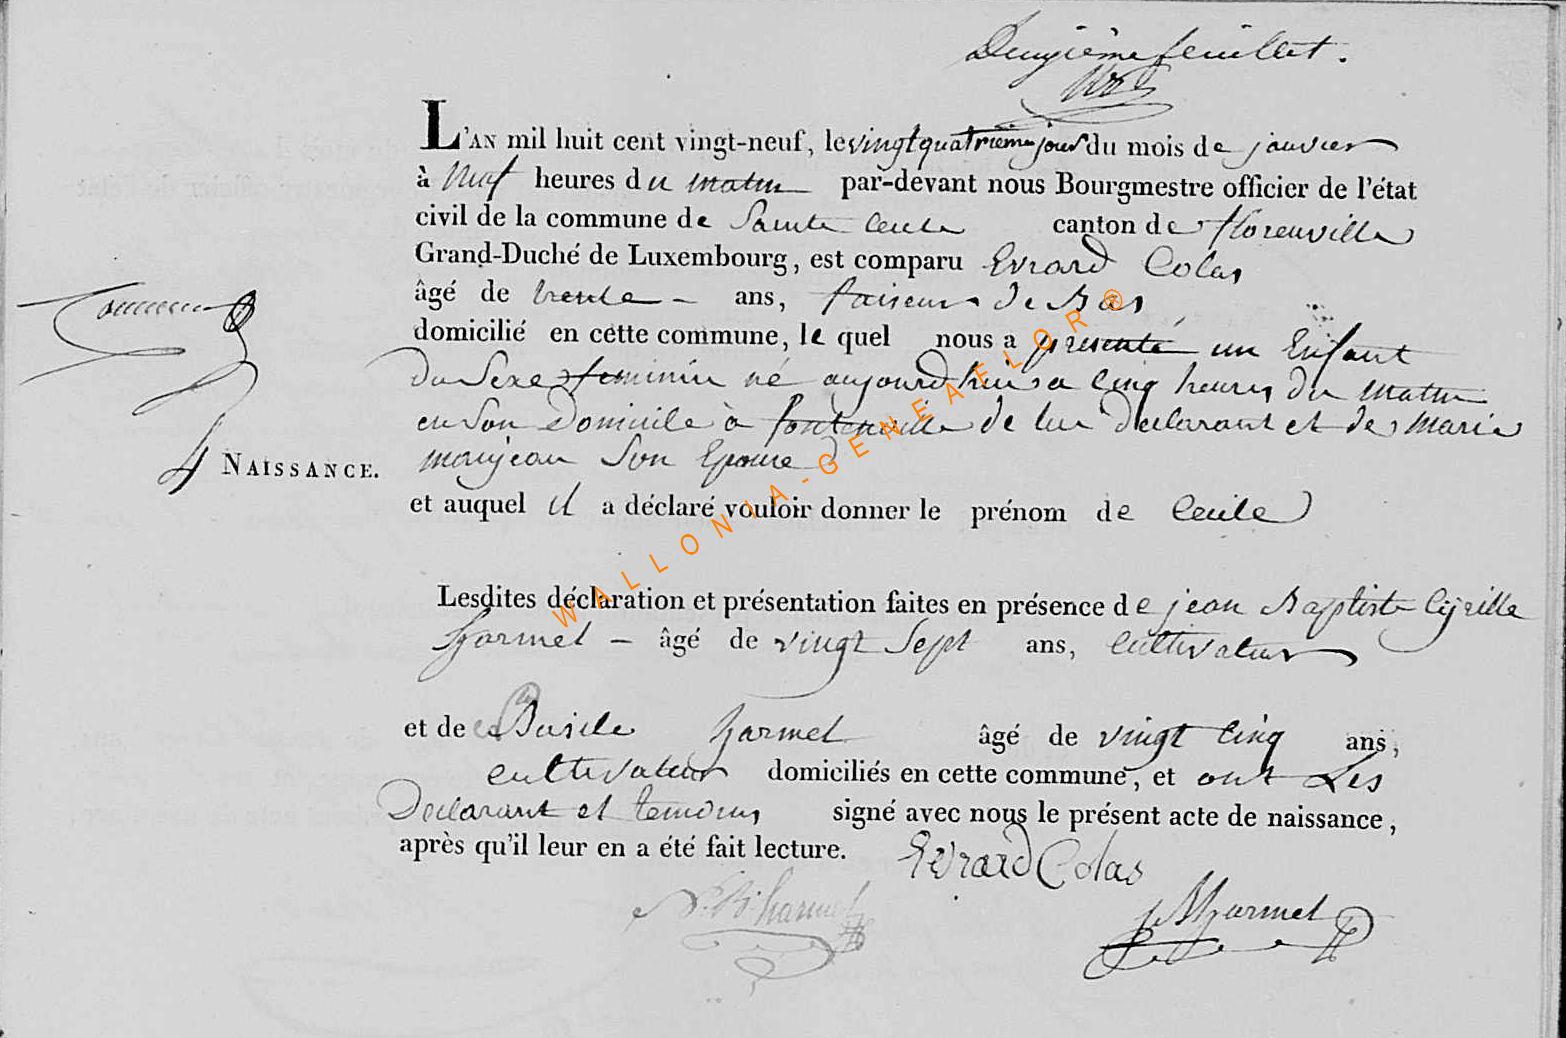 Deuxième feuillet.
L'AN mil huit cent vingt-neuf, le vingt quatrieme jour du mois de janvier
à Neuf heures du matin par-devant nous Bourgmestre officier de l'état
civil de la commune de Sainte Cecile canton de florenville
Grand-Duché de Luxembourg, est comparu Evrard Colas
âgé de trente - ans, faiseur de Bas
domicilié en cette commune, le quel nous a présenté un Enfant
du Sexe feminin né aujourd'hui a cinq heures du matin
en son Domicile à fontenoille de lui declarant et de Marie
manjean Son Epouse
4 NAISSANCE.
et auquel il a déclaré vouloir donner le prénom de Cecile
Lesdites déclaration et présentation faites en présence de jean Baptiste Cyrille
harmel - âgé de vingt Sept ans, cultivateur
et de Basile harmel âgé de vingt cinq ans,
cultivateur domiciliés en cette commune, et ont Les
Declarant et temoins signé avec nous le présent acte de naissance,
après qu'il leur en a été fait lecture. Evrard Colas
J. B. harmel
harmel
WALLONIA-GENEAELOR®